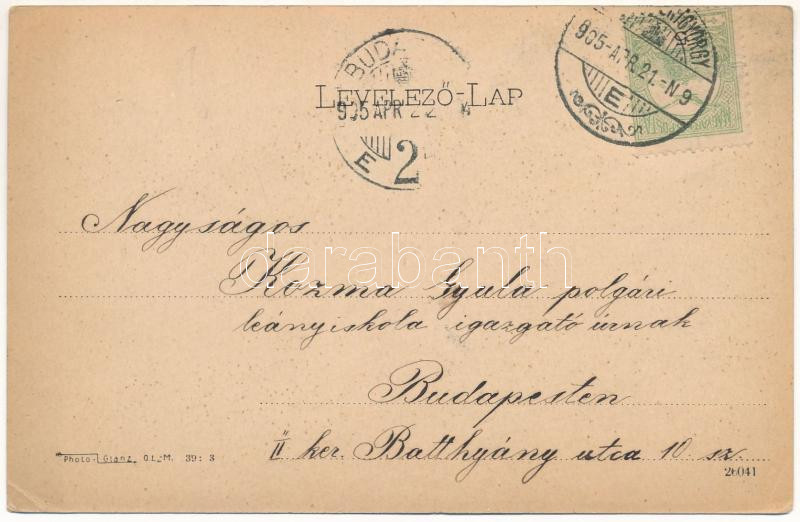 BUDA
905 APR 22
E
2
905-APR.21.-N9
E
LEVELEZŐ-LAP
Nagyságos
darabanth
Kozma Gyula polgári
leányiskola igazgató úrnak
Budapesten
II ker. Batthyány utca 10 sz.
Photo-Glanz. O.L.M. 39: 3
26041